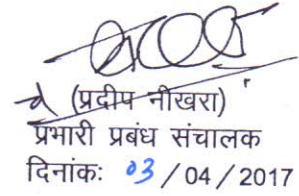 (प्रदीप नीखरा)
प्रभारी प्रबंध संचालक
दिनांकः 03 / 04 / 2017